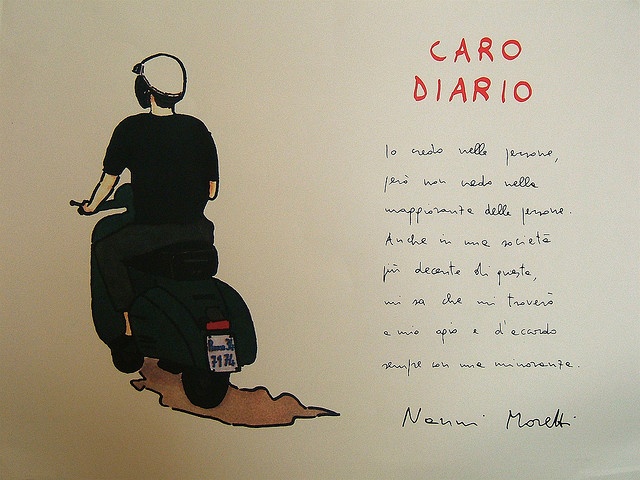 CARO
DIARIO
Io credo nelle persone,
però non credo nella
maggioranza delle persone.
Anche in una società
più decente di questa,
mi sa che mi troverò
a mio agio e d'accordo
sempre con una minoranza.
Nanni Moretti
Roma 34
7174